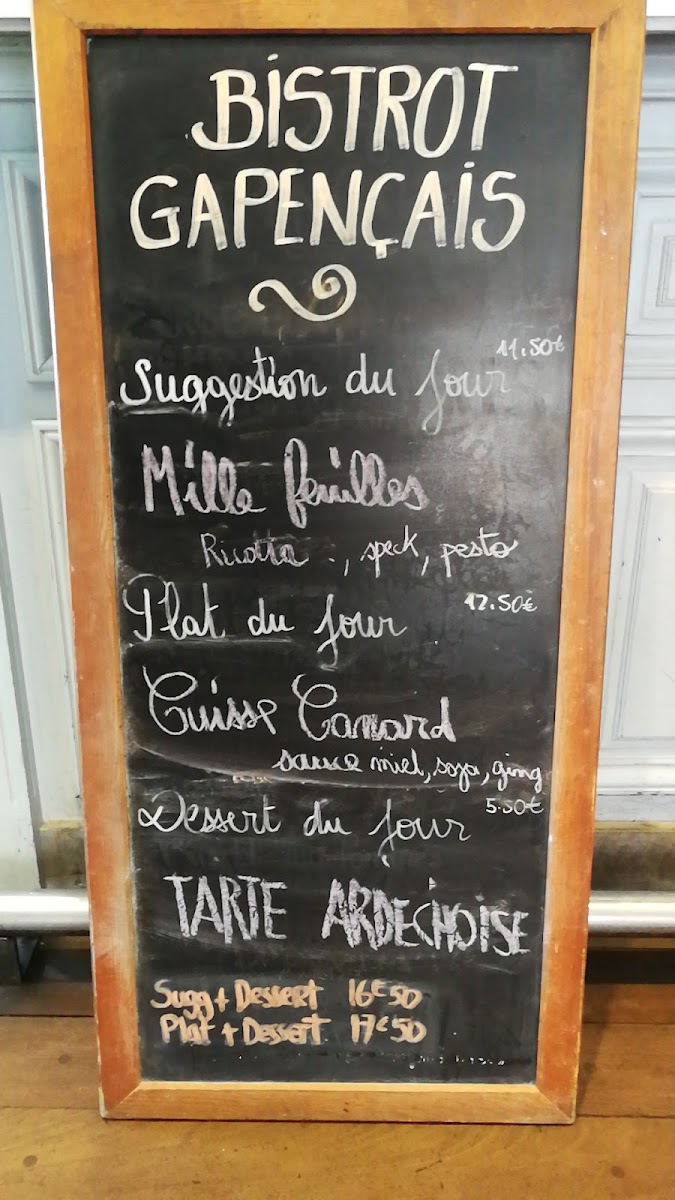 BISTROT
GAPENÇAIS
11.50€
Suggestion du jour
Mille feuilles
Ricotta , speck, pesto
12.50€
Plat du jour
Cuisse Canard
sauce miel, soja, ging
5.50€
Dessert du jour
TARTE ARDECHOISE
Sugg + Dessert 16€50
Plat + Dessert 17€50